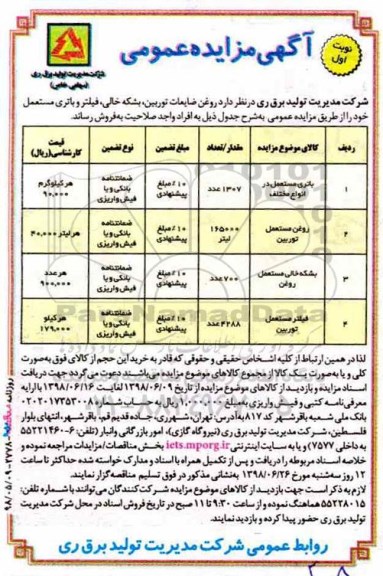 نوبت اول
آگهی مزایده عمومی
شرکت مدیریت تولید برق ری
(سهامی خاص)
شرکت مدیریت تولید برق ری درنظر دارد روغن ضایعات توربین، بشکه خالی، فیلتر و باتری مستعمل
خود را از طریق مزایده عمومی به‌شرح جدول ذیل به افراد واجد صلاحیت به‌فروش رساند.
ردیف کالای موضوع مزایده مقدار/تعداد مبلغ تضمین نوع تضمین قیمت کارشناسی(ریال)
۱ باتری مستعمل در انواع مختلف ۱۳۰۷ عدد ۱۰٪ مبلغ پیشنهادی ضمانتنامه بانکی و یا فیش واریزی هر کیلوگرم ۹۰,۰۰۰
۲ روغن مستعمل توربین ۱۶۵۰۰۰ لیتر ۱۰٪ مبلغ پیشنهادی ضمانتنامه بانکی و یا فیش واریزی هر لیتر ۴۰,۰۰۰
۳ بشکه خالی مستعمل روغن ۷۰۰ عدد ۱۰٪ مبلغ پیشنهادی ضمانتنامه بانکی و یا فیش واریزی هر عدد ۹۰۰,۰۰۰
۴ فیلتر مستعمل توربین ۴۲۸۸ عدد ۱۰٪ مبلغ پیشنهادی ضمانتنامه بانکی و یا فیش واریزی هر کیلو ۱۷۹,۰۰۰
لذا در همین ارتباط از کلیه اشخاص حقیقی و حقوقی که قادر به خرید این حجم از کالای فوق به‌صورت
کلی و یا به‌صورت یک کالا از مجموع کالاهای موضوع مزایده می‌باشند دعوت می‌گردد جهت دریافت
اسناد مزایده و بازدید از کالاهای موضوع مزایده از تاریخ ۱۳۹۸/۰۶/۰۹ لغایت ۱۳۹۸/۰۶/۱۶ با ارایه
معرفی‌نامه کتبی و فیش واریزی به‌مبلغ ریال به‌حساب شماره ۰۲۰۲۰۱۷۳۵۳۰۰۸
بانک ملی شعبه باقرشهر کد ۸۱۷ به‌آدرس: تهران، شهرری، جاده قدیم قم، باقرشهر، انتهای بلوار
فلسطین، شرکت مدیریت تولید برق ری (نیروگاه گازی)، امور بازرگانی وانبار (تلفن: ۶-۵۵۲۲۱۴۶۰
به داخلی ۷۵۷۷) و یا به سایت اینترنتی iets.mporg.ir بخش مناقصات/ مزایدات مراجعه نموده و
خلاصه اسناد مربوطه را دریافت و پس از تکمیل همراه با اسناد و مدارک خواسته شده حداکثر تا ساعت
۱۲ روز سه‌شنبه مورخ ۱۳۹۸/۰۶/۲۶ به‌نشانی مذکور در فوق تسلیم مناقصه‌گزار نمایند.
لازم به ذکر است جهت بازدید از کالاهای موضوع مزایده شرکت کنندگان می‌توانند با شماره تلفن:
۵۵۲۲۸۰۱۵ هماهنگ نموده و از ساعت ۹:۳۰ تا ۱۱ صبح در تاریخ فروش اسناد در محل شرکت مدیریت
تولید برق ری حضور پیدا کرده و بازدید نمایند.
روابط عمومی شرکت مدیریت تولید برق ری